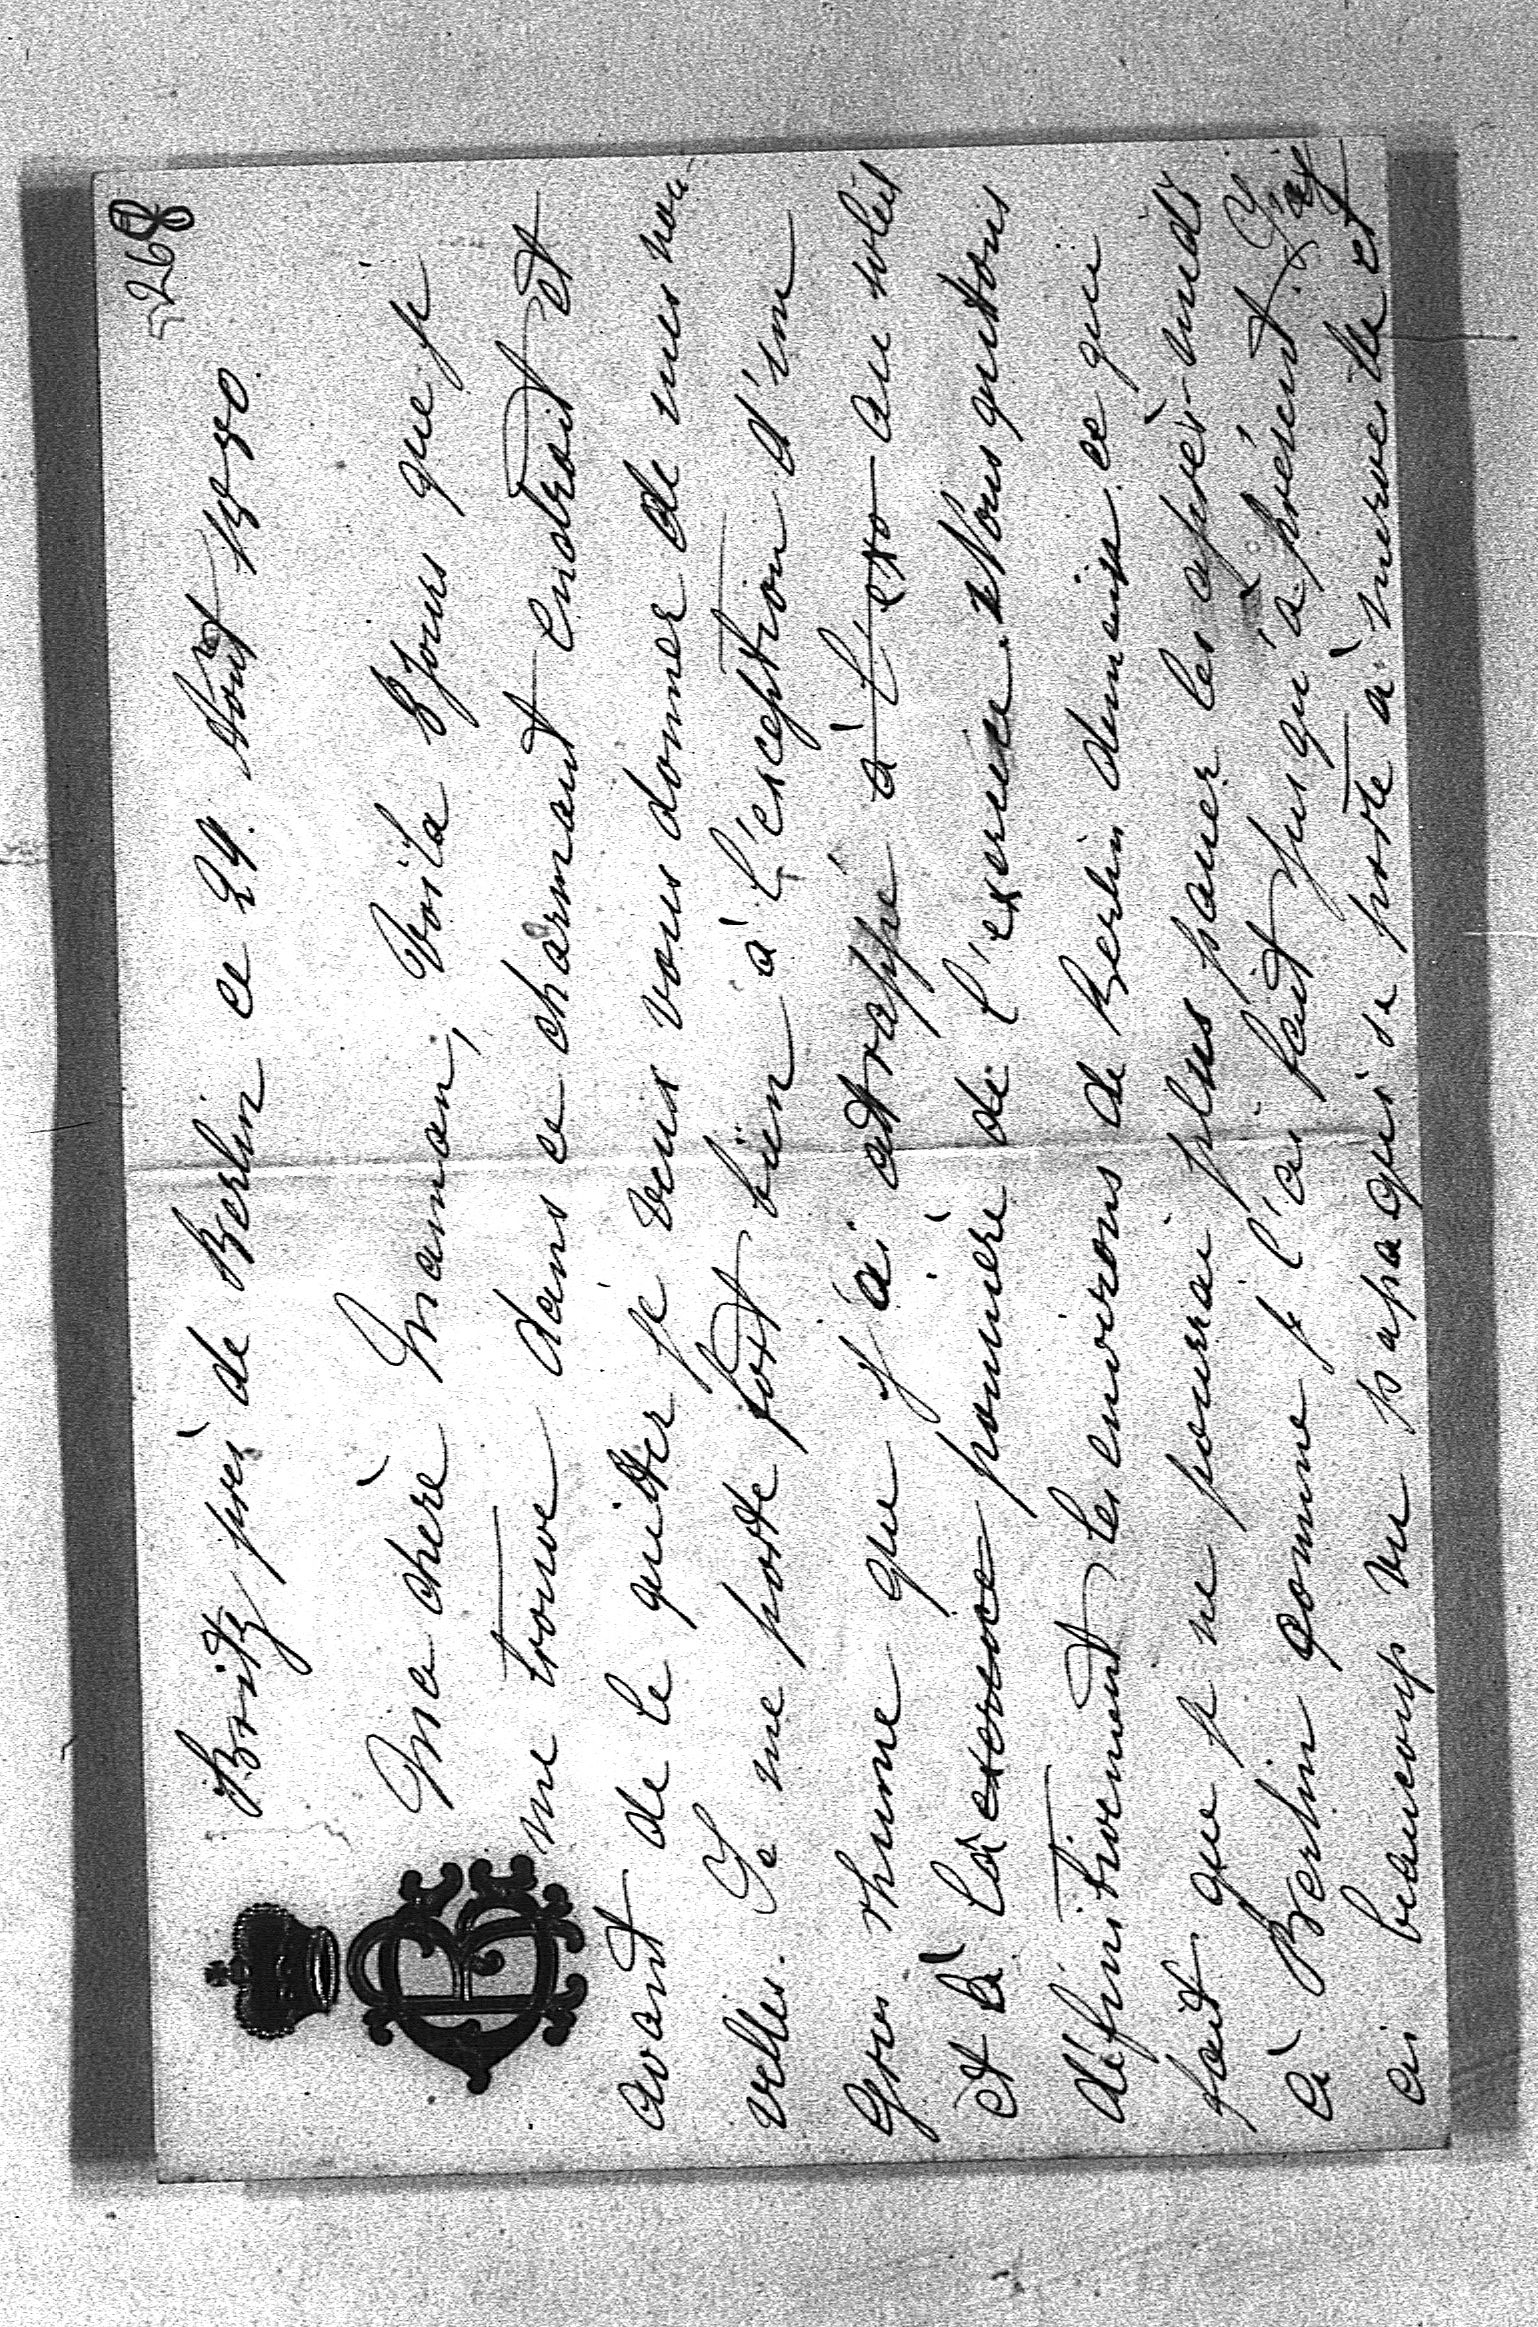 268
Britz près de Berlin ce 24. Août 1890.
Ma chère Maman, Voila 8 jours que je
me trouve dans ce charmant endroit et
avant de le quitter je veux vous donner de mes nou-
velles. Je me porte fort bien à l'exception d'un
gros rhume que j'ai attrappé à l'exo au soleil
et à la exersice poussière de l'exersice. Nous quittons
définitivement les environs de Berlin demain ce qui
fait que je ne pourrai plus passer les après-midi
à Berlin comme je l'ai fait jusqu'à présent. J'ai
ai beaucoup vu papa qui se porte à merveille et